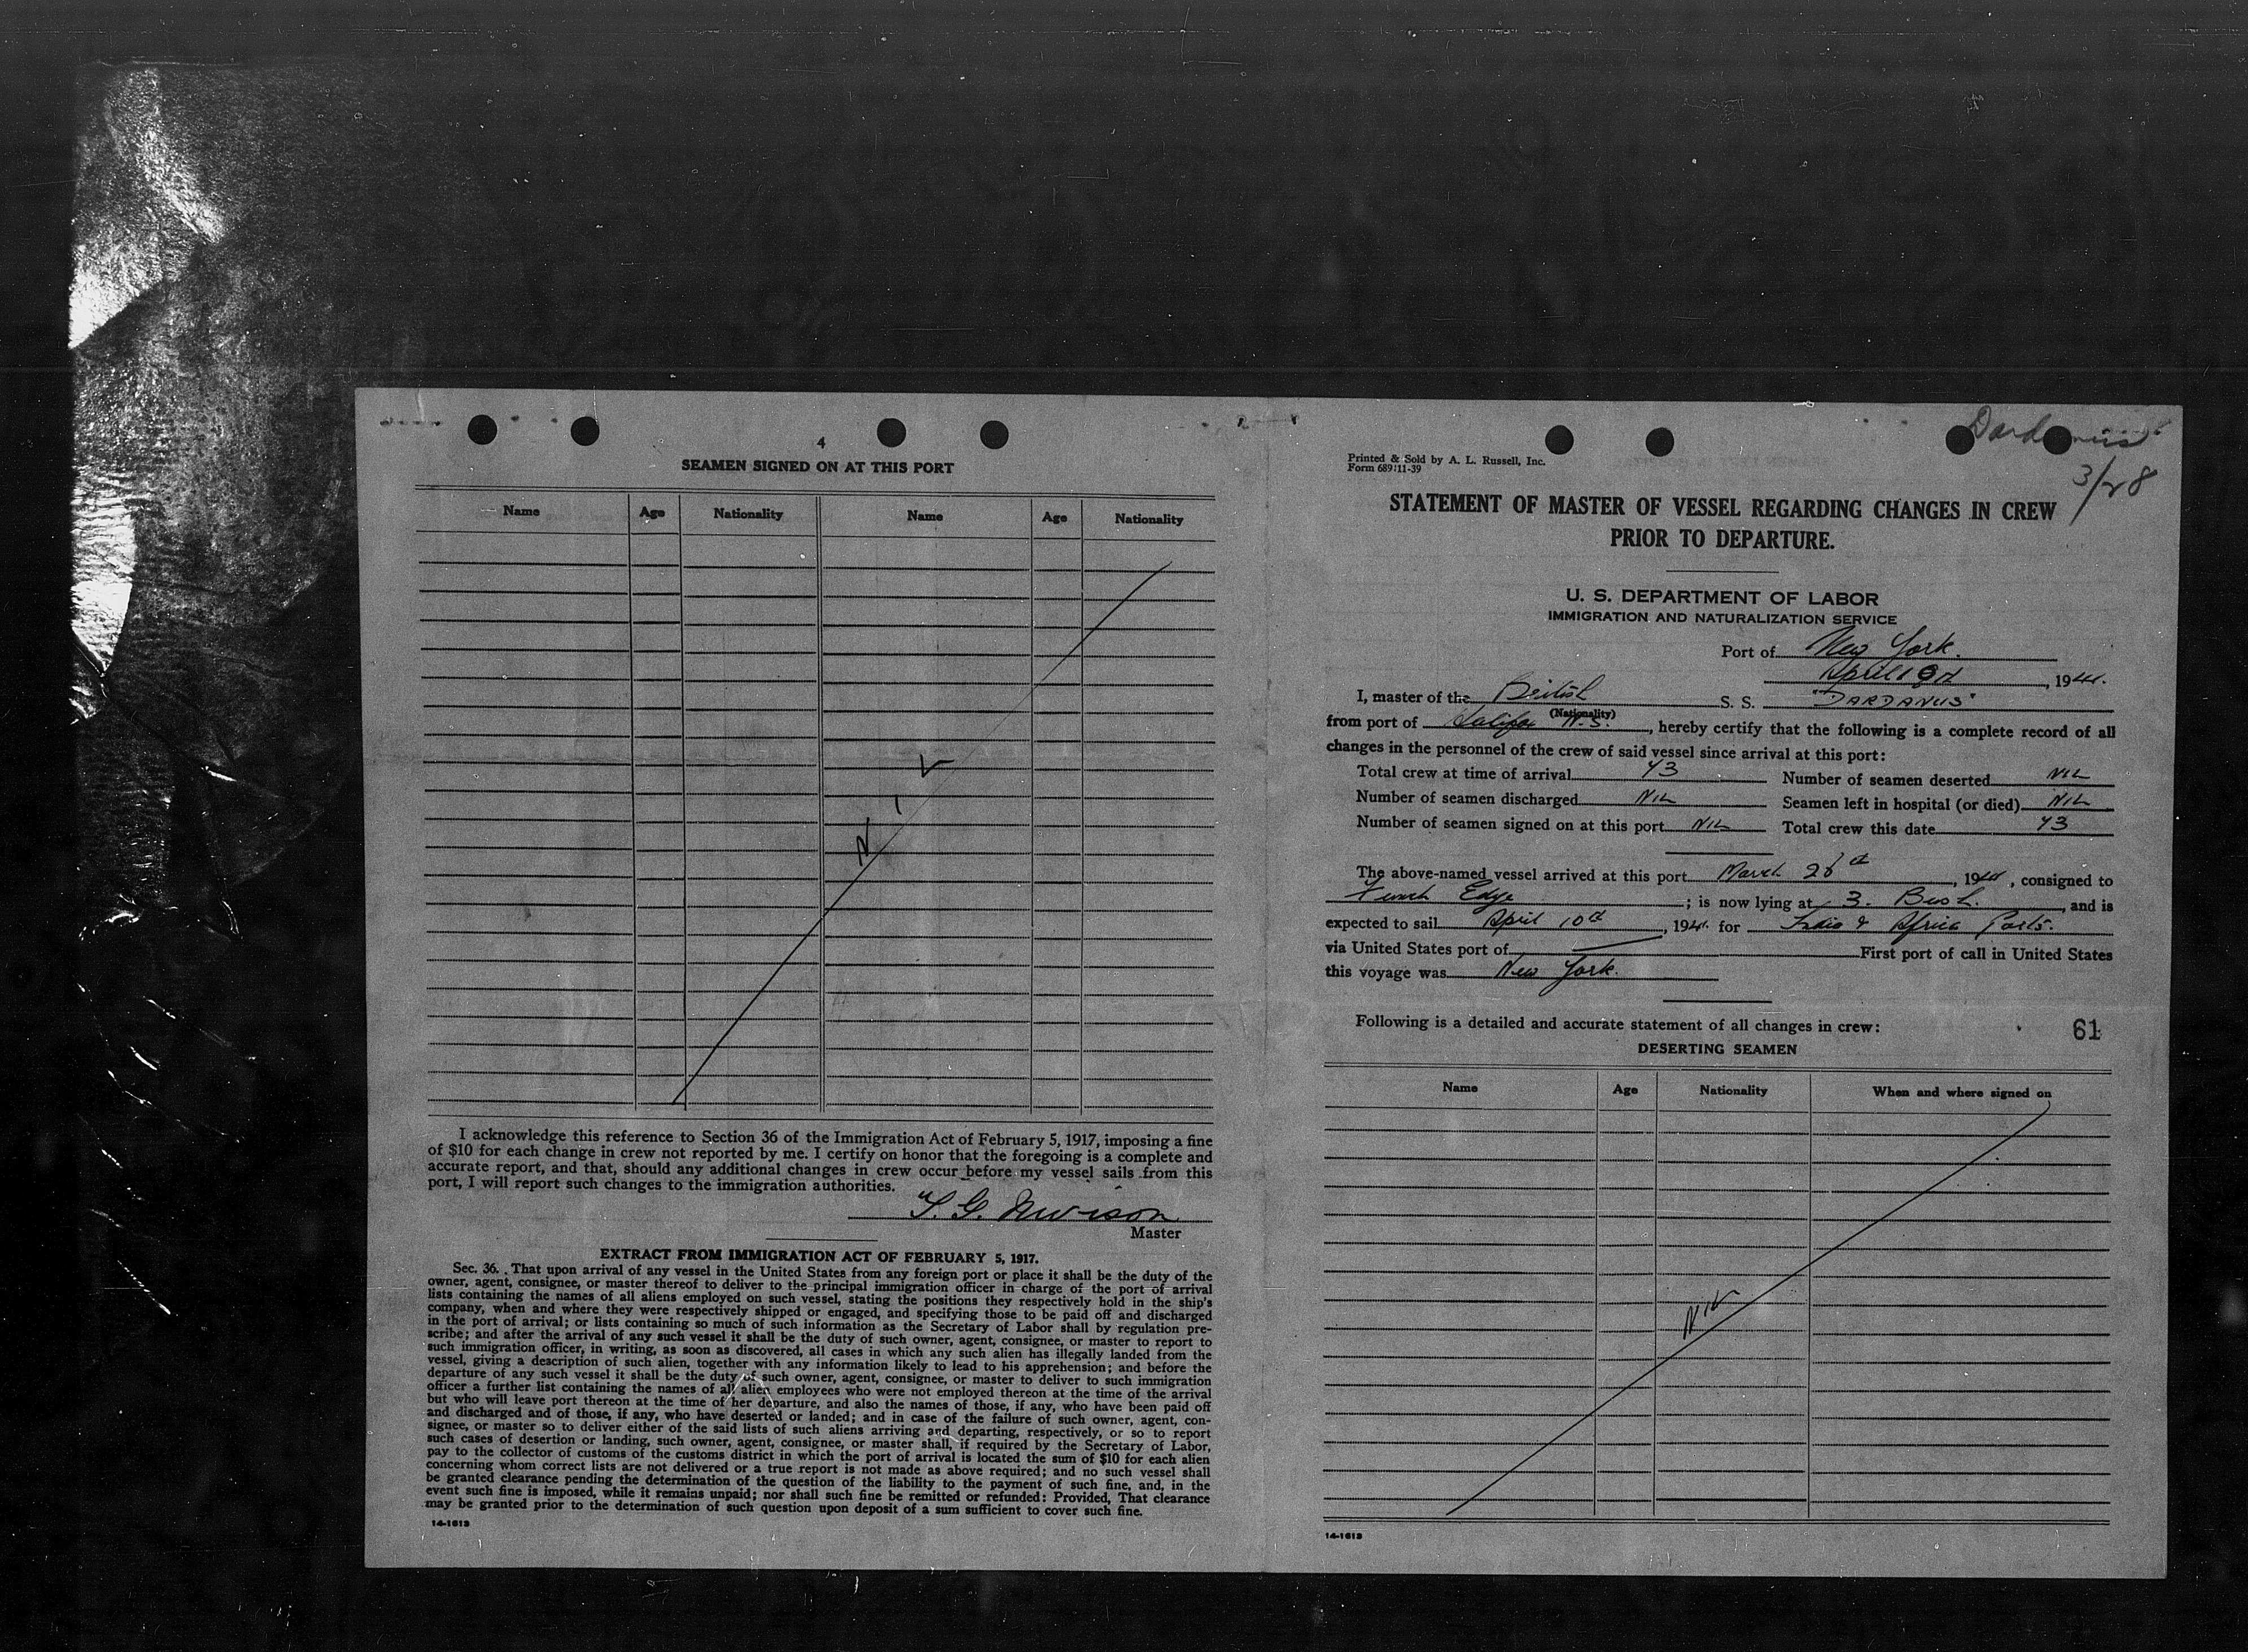 4
SEAMEN SIGNED ON AT THIS PORT
Name Age Nationality Name Age Nationality
N I L
I acknowledge this reference to Section 36 of the Immigration Act of February 5, 1917, imposing a fine
of $10 for each change in crew not reported by me. I certify on honor that the foregoing is a complete and
accurate report, and that, should any additional changes in crew occur before my vessel sails from this
port, I will report such changes to the immigration authorities.
Master
EXTRACT FROM IMMIGRATION ACT OF FEBRUARY 5, 1917.
Sec. 36. That upon arrival of any vessel in the United States from any foreign port or place it shall be the duty of the
owner, agent, consignee, or master thereof to deliver to the principal immigration officer in charge of the port of arrival
lists containing the names of all aliens employed on such vessel, stating the positions they respectively hold in the ship's
company, when and where they were respectively shipped or engaged, and specifying those to be paid off and discharged
in the port of arrival; or lists containing so much of such information as the Secretary of Labor shall by regulation pre-
scribe; and after the arrival of any such vessel it shall be the duty of such owner, agent, consignee, or master to report to
such immigration officer, in writing, as soon as discovered, all cases in which any such alien has illegally landed from the
vessel, giving a description of such alien, together with any information likely to lead to his apprehension; and before the
departure of any such vessel it shall be the duty of such owner, agent, consignee, or master to deliver to such immigration
officer a further list containing the names of all alien employees who were not employed thereon at the time of the arrival
but who will leave port thereon at the time of her departure, and also the names of those, if any, who have been paid off
and discharged and of those, if any, who have deserted or landed; and in case of the failure of such owner, agent, con-
signee, or master so to deliver either of the said lists of such aliens arriving and departing, respectively, or so to report
such cases of desertion or landing, such owner, agent, consignee, or master shall, if required by the Secretary of Labor,
pay to the collector of customs of the customs district in which the port of arrival is located the sum of $10 for each alien
concerning whom correct lists are not delivered or a true report is not made as above required; and no such vessel shall
be granted clearance pending the determination of the question of the liability to the payment of such fine, and, in the
event such fine is imposed, while it remains unpaid; nor shall such fine be remitted or refunded: Provided, That clearance
may be granted prior to the determination of such question upon deposit of a sum sufficient to cover such fine.
14-1613
Dardanus
3/28
Printed & Sold by A. L. Russell, Inc.
Form 689:11-39
STATEMENT OF MASTER OF VESSEL REGARDING CHANGES IN CREW
PRIOR TO DEPARTURE.
U. S. DEPARTMENT OF LABOR
IMMIGRATION AND NATURALIZATION SERVICE
Port of New York.
April , 1941.
I, master of the British S. S. "DARDANUS"
(Nationality)
from port of Halifax N.S. , hereby certify that the following is a complete record of all
changes in the personnel of the crew of said vessel since arrival at this port:
Total crew at time of arrival 73 Number of seamen deserted NIL
Number of seamen discharged NIL Seamen left in hospital (or died) NIL
Number of seamen signed on at this port NIL Total crew this date 73
The above-named vessel arrived at this port March , 1941, consigned to
Funch Edye ; is now lying at 3. Bush. , and is
expected to sail April 10th , 1941. for India & Africa Ports.
via United States port of First port of call in United States
this voyage was New York.
Following is a detailed and accurate statement of all changes in crew:
61
DESERTING SEAMEN
Name Age Nationality When and where signed on
NIL
14-1613